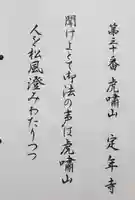 第三十番 虎嘯山 定年寺
聞けよとて御法の声は虎嘯山
人を松風澄みわたりつつ